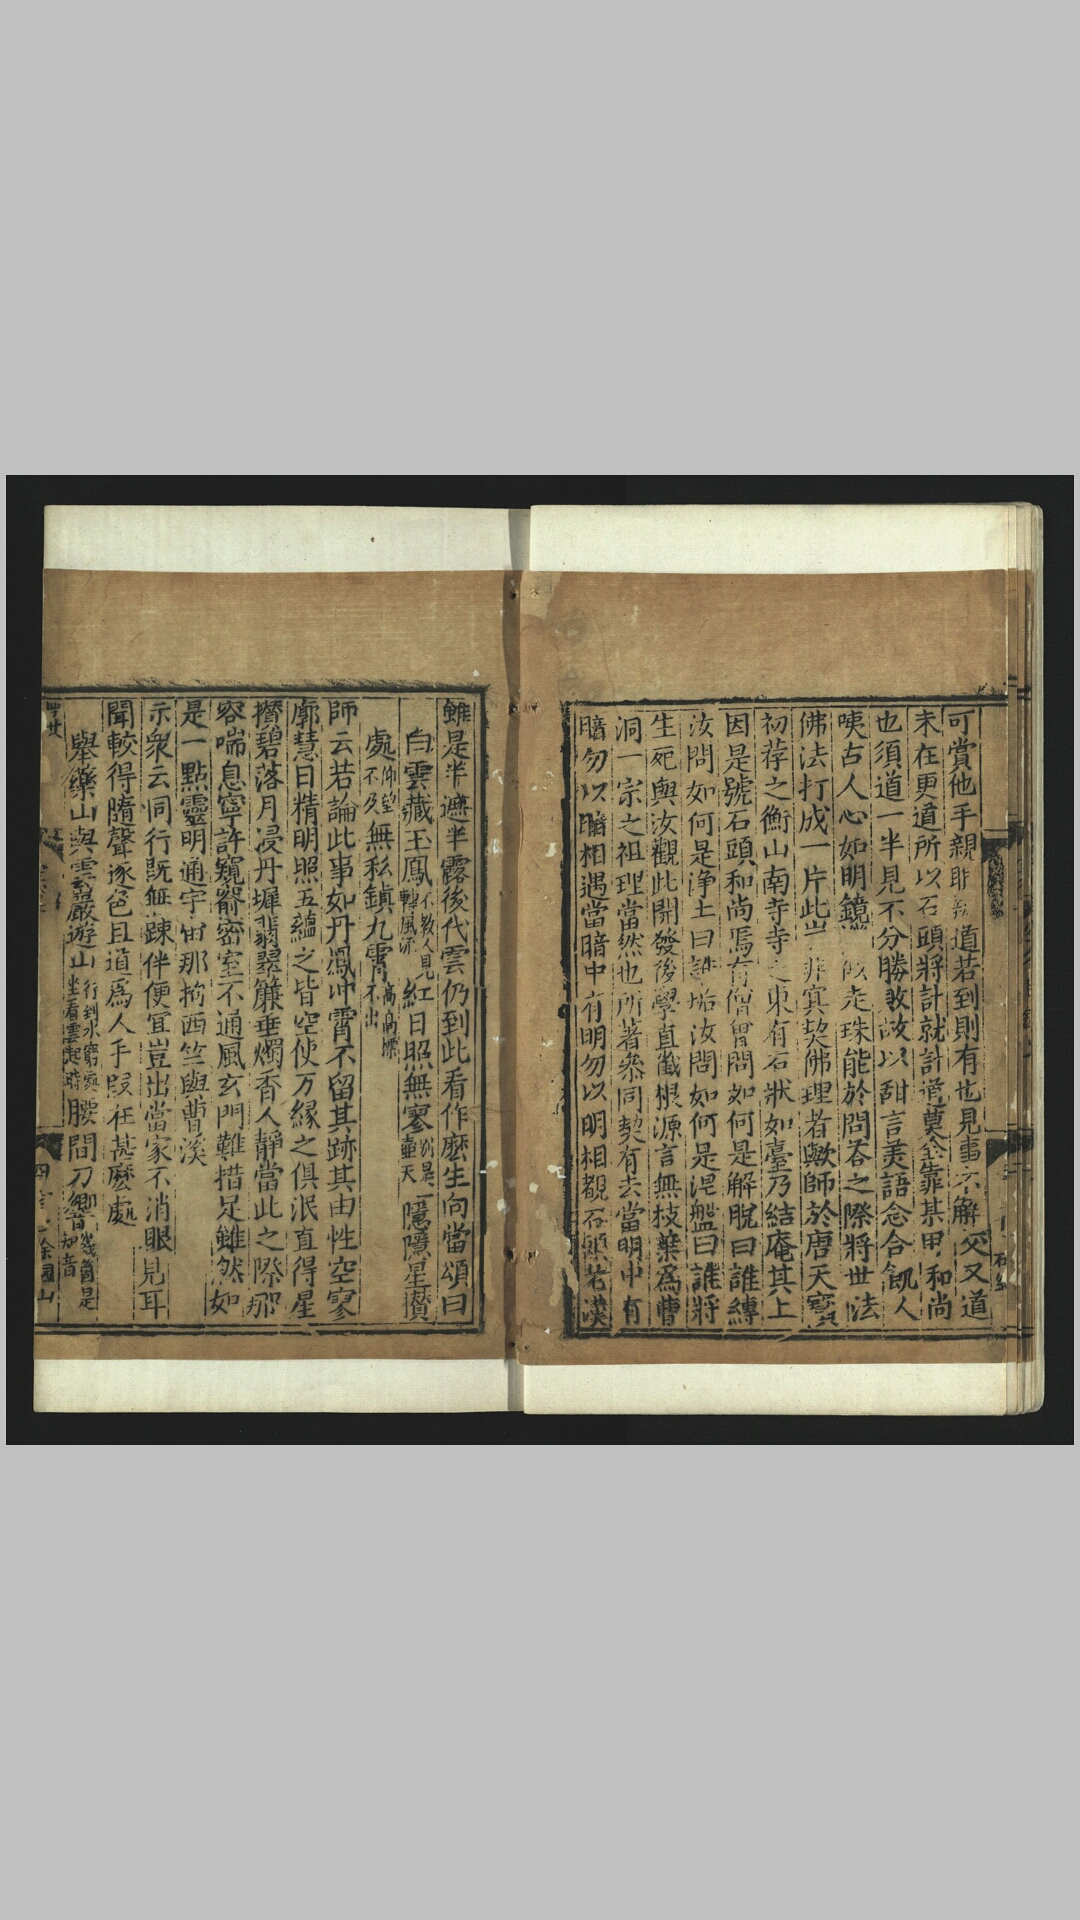 可賞他手親眼道若到則有也見事不解交又道
未在更道所以石頭將計就計道莫全靠某甲和尚
也須道一半見不分勝敗故以甜言美語念合飢人
咦古人心如明鏡似走珠能於問荅之際將世法
佛法打成一片此豈非冥契佛理者歟師於唐天寶
初荐之衡山南寺寺之東有石狀如臺乃結庵其上
因是號石頭和尚焉有僧曾問如何是解脫曰誰縛
汝問如何是淨土曰誰垢汝問如何是涅盤曰誰將
生死與汝觀此開發後學直截根源言無枝葉為曹
洞一宗之祖理當然也所著叅同契有去當明中有
暗勿以暗相遇當暗中有明勿以明相覩石頭老漢
雖是半遮半露後代雲仍到此看作麽生向當頌曰
白雲藏玉鳳不教人見轉風流紅日照無寥別是一壺天隱隱星攢
處仰望不及無私鎮九霄高高標不出
師云若論此事如丹鳳冲霄不留其跡其由性空寥
廓慧日精明照五蘊之皆空使万緣之俱泯直得星
攢碧落月浸丹墀翡翠簾垂燭香人靜當此之際那
容喘息寧許窺窬密室不通風玄門難措足雖然如
是一點靈明通宇宙那拘西竺與曹溪
示衆云同行既無踈伴便冝豈出當家不消眼見耳
聞較得隨聲逐色且道為人手叚在甚麽處
舉藥山與雲巖遊山行到水窮處坐看雲起時腰間刀響幾箇是知音